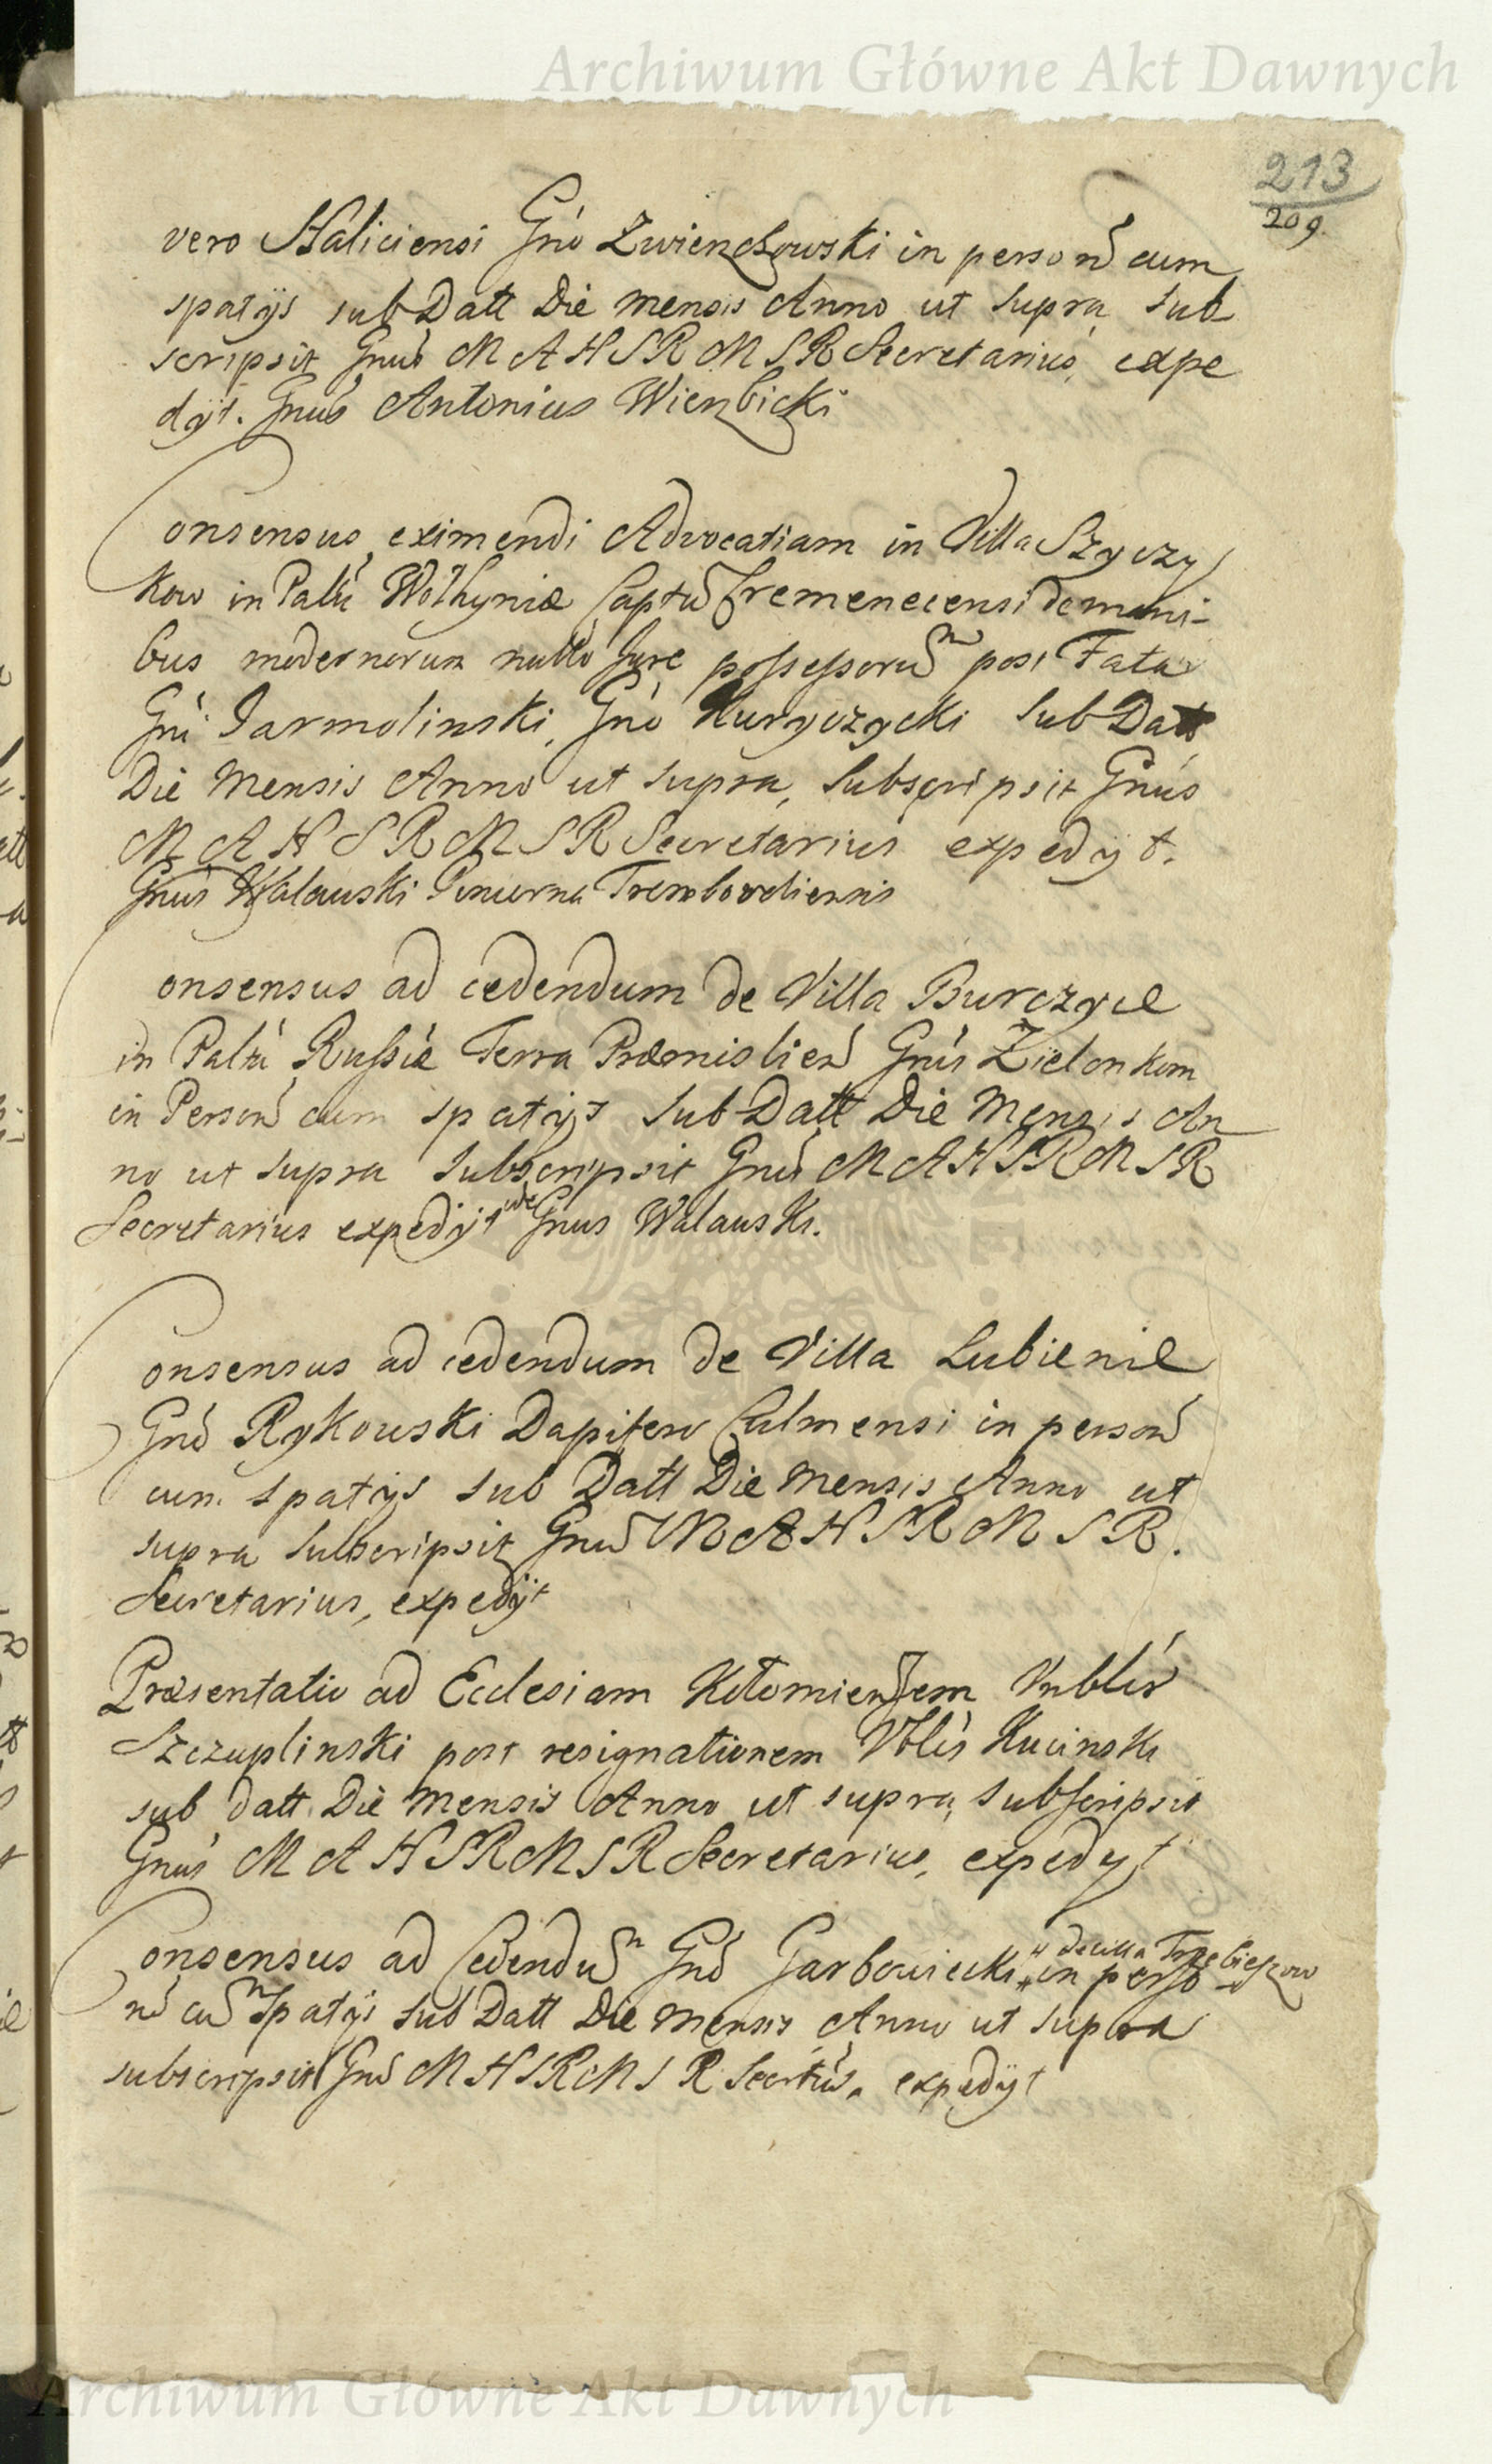 Archiwum Główne Akt Dawnych
213
209.
vero Haliciensi Gño Zwienchowski in persoñ cum
spatijs sub Datt Die mensis Anno ut supra sub
scripsit Gnus M A H S R M S R Secretarius expe
dijt. Gnus Antonius Wierzbicki
Consensus eximendi Advocatiam in Villa Szyczy
kow in Palt͠u Wołhyniæ Captu Cremenecensi de mani-
bus modernorum nullo Jure possessorum post Fata
Gñi Jarmolinski, Gño Kuryczycki sub Datt
Die Mensis Anno ut supra, subscripsit Gnus
M A H S R M S R Secretarius expedijt.
Gnus Walauski Pincerna Trembovliensis
Consensus ad cedendum de Villa Burczyce
in Palt͠u Russiæ Terra Præmislien Gñis Zielonkom
in Person cum spatijs sub Datt Die Mensis An
no ut supra subscripsit Gnus M A H S R M S R
Secretarius expedijt ide Gnus Walauski.
Consensus ad cedendum de Villa Lubienie
Gño Rykowski Dapifero Culmensi in person
cum spatijs sub Datt Die Mensis Anno ut
supra subscripsit Gnus M A H S R M S R.
Secretarius, expedijt
Præsentatio ad Ecclesiam Kitomiensem Vnblis
Szczuplinski post resignationem Vblis Kucinski
sub datt Die Mensis Anno ut supra subscripsit
Gnus M A H S R M S R Secretarius, expedijt
de villa Trzebieszow
Consensus ad Cedendum Gño Garbowiecki in perso
ñ cum spatijs sub Datt Die Mensis Anno ut supra
subscripsit Gnus M H S R M S R Secrtus. expedijt
Archiwum Główne Akt Dawnych